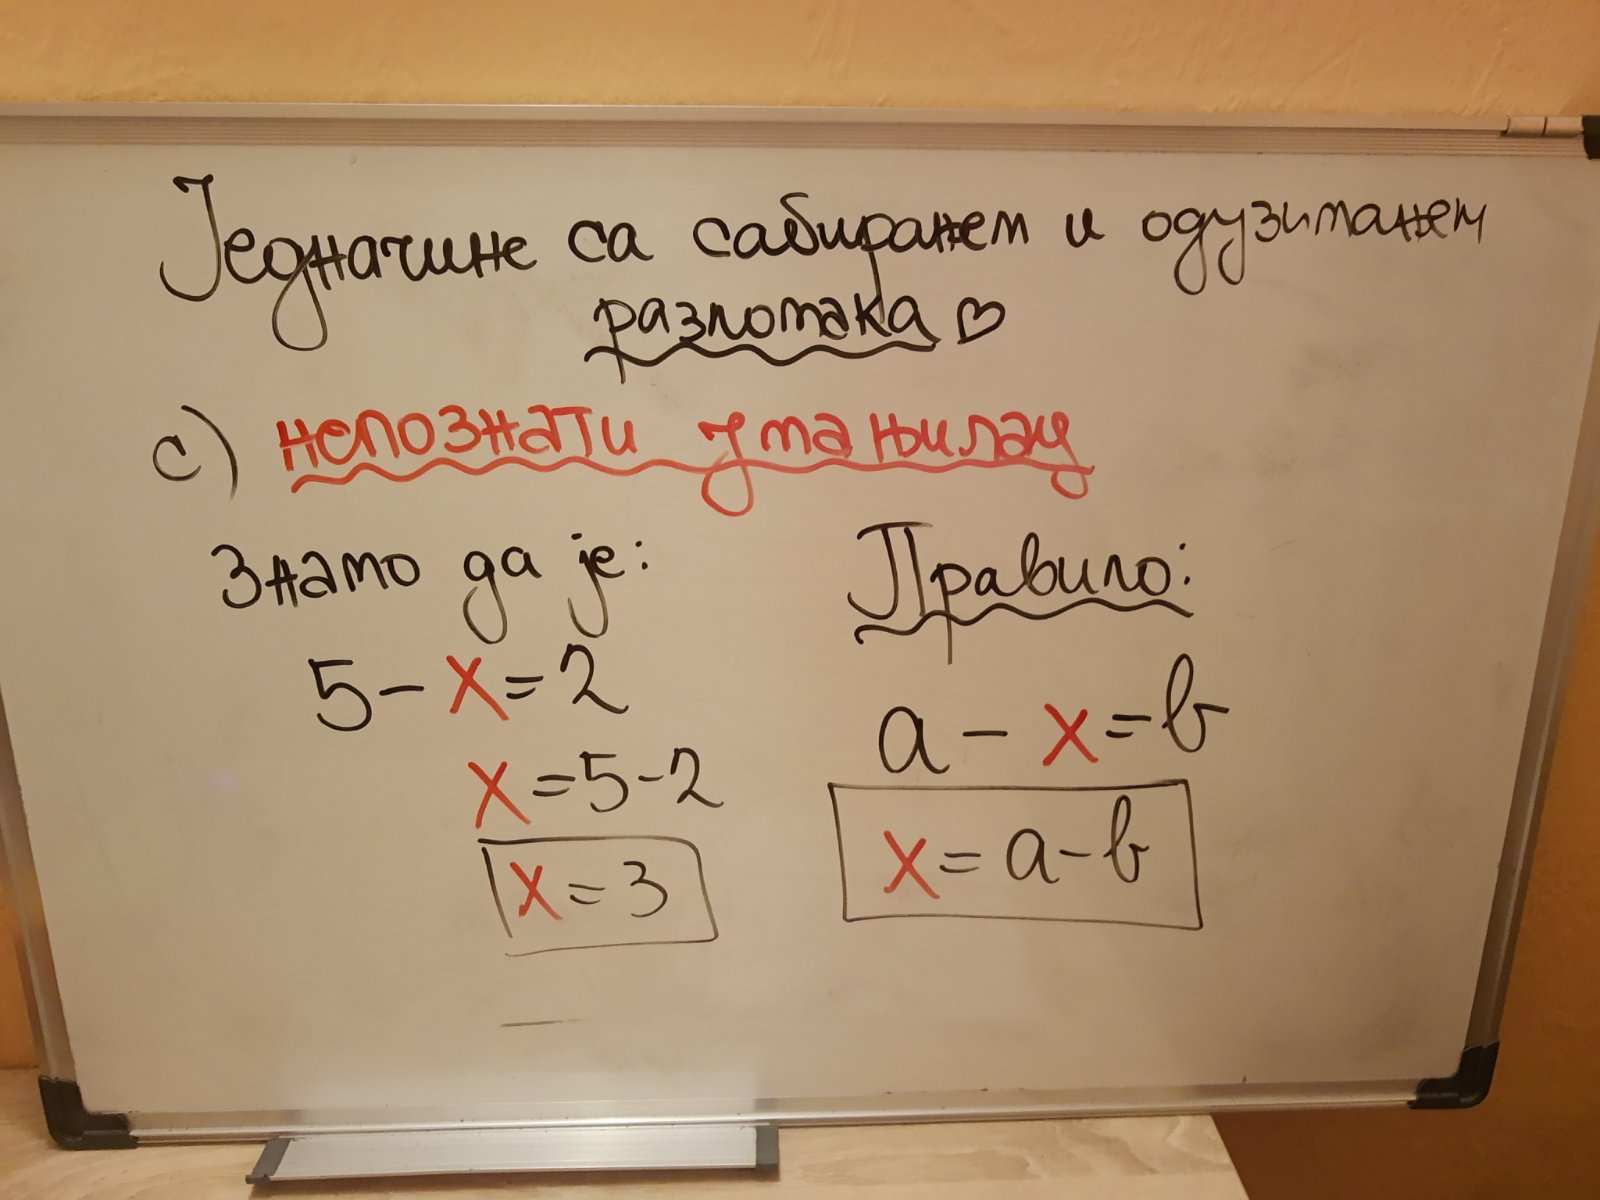 Једначине са сабирањем и одузимањем
разломака ♡
c) непознати умањилац
Знамо да је:
5 - x = 2
x = 5 - 2
x = 3
Правило:
a - x = b
x = a - b